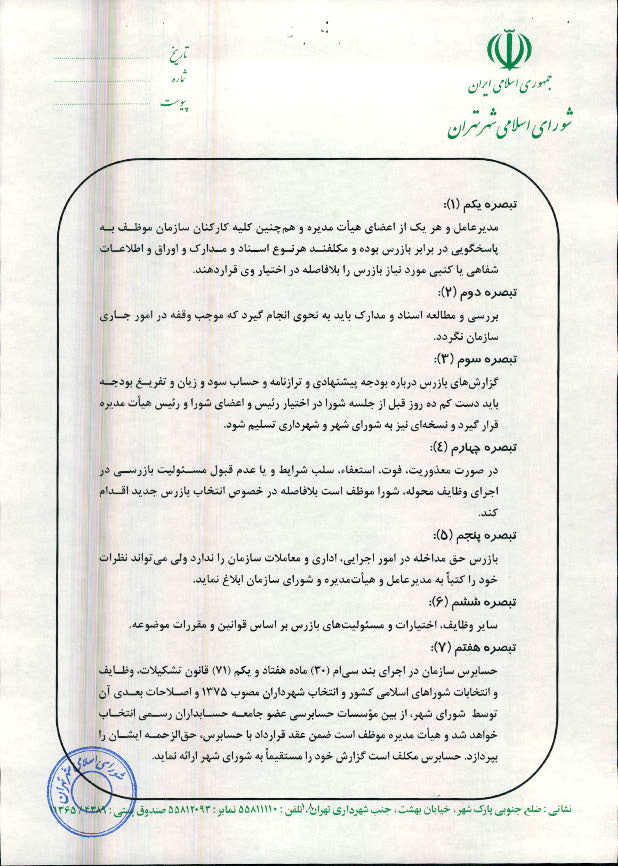 جمهوری اسلامی ایران
شورای اسلامی شهر تهران
تاریخ
شماره
پیوست
تبصره یکم (۱):
مدیرعامل و هر یک از اعضای هیأت مدیره و هم‌چنین کلیه کارکنان سازمان موظف به
پاسخگویی در برابر بازرس بوده و مکلفند هرنوع اسناد و مدارک و اوراق و اطلاعات
شفاهی یا کتبی مورد نیاز بازرس را بلافاصله در اختیار وی قراردهند.
تبصره دوم (۲):
بررسی و مطالعه اسناد و مدارک باید به نحوی انجام گیرد که موجب وقفه در امور جاری
سازمان نگردد.
تبصره سوم (۳):
گزارش‌های بازرس درباره بودجه پیشنهادی و ترازنامه و حساب سود و زیان و تفریغ بودجه
باید دست کم ده روز قبل از جلسه شورا در اختیار رئیس و اعضای شورا و رئیس هیأت مدیره
قرار گیرد و نسخه‌ای نیز به شورای شهر و شهرداری تسلیم شود.
تبصره چهارم (٤):
در صورت معذوریت، فوت، استعفاء، سلب شرایط و یا عدم قبول مسئولیت بازرسی در
اجرای وظایف محوله، شورا موظف است بلافاصله در خصوص انتخاب بازرس جدید اقدام
کند.
تبصره پنجم (۵):
بازرس حق مداخله در امور اجرایی، اداری و معاملات سازمان را ندارد ولی می‌تواند نظرات
خود را کتباً به مدیرعامل و هیأت‌مدیره و شورای سازمان ابلاغ نماید.
تبصره ششم (۶):
سایر وظایف، اختیارات و مسئولیت‌های بازرس بر اساس قوانین و مقررات موضوعه.
تبصره هفتم (۷):
حسابرس سازمان در اجرای بند سی‌ام (۳۰) ماده هفتاد و یکم (۷۱) قانون تشکیلات، وظایف
و انتخابات شوراهای اسلامی کشور و انتخاب شهرداران مصوب ۱۳۷۵ و اصلاحات بعدی آن
توسط شورای شهر، از بین مؤسسات حسابرسی عضو جامعه حسابداران رسمی انتخاب
خواهد شد و هیأت مدیره موظف است ضمن عقد قرارداد با حسابرس، حق‌الزحمه ایشان را
بپردازد. حسابرس مکلف است گزارش خود را مستقیماً به شورای شهر ارائه نماید.
شورای اسلامی شهر تهران
نشانی : ضلع جنوبی پارک شهر، خیابان بهشت، جنب شهرداری تهران، تلفن : ۵۵۸۱۱۱۱۰ نمابر : ۵۵۸۱۲۰۹۳ صندوق پستی : ۴۳۸۹ / ۱۳۶۵